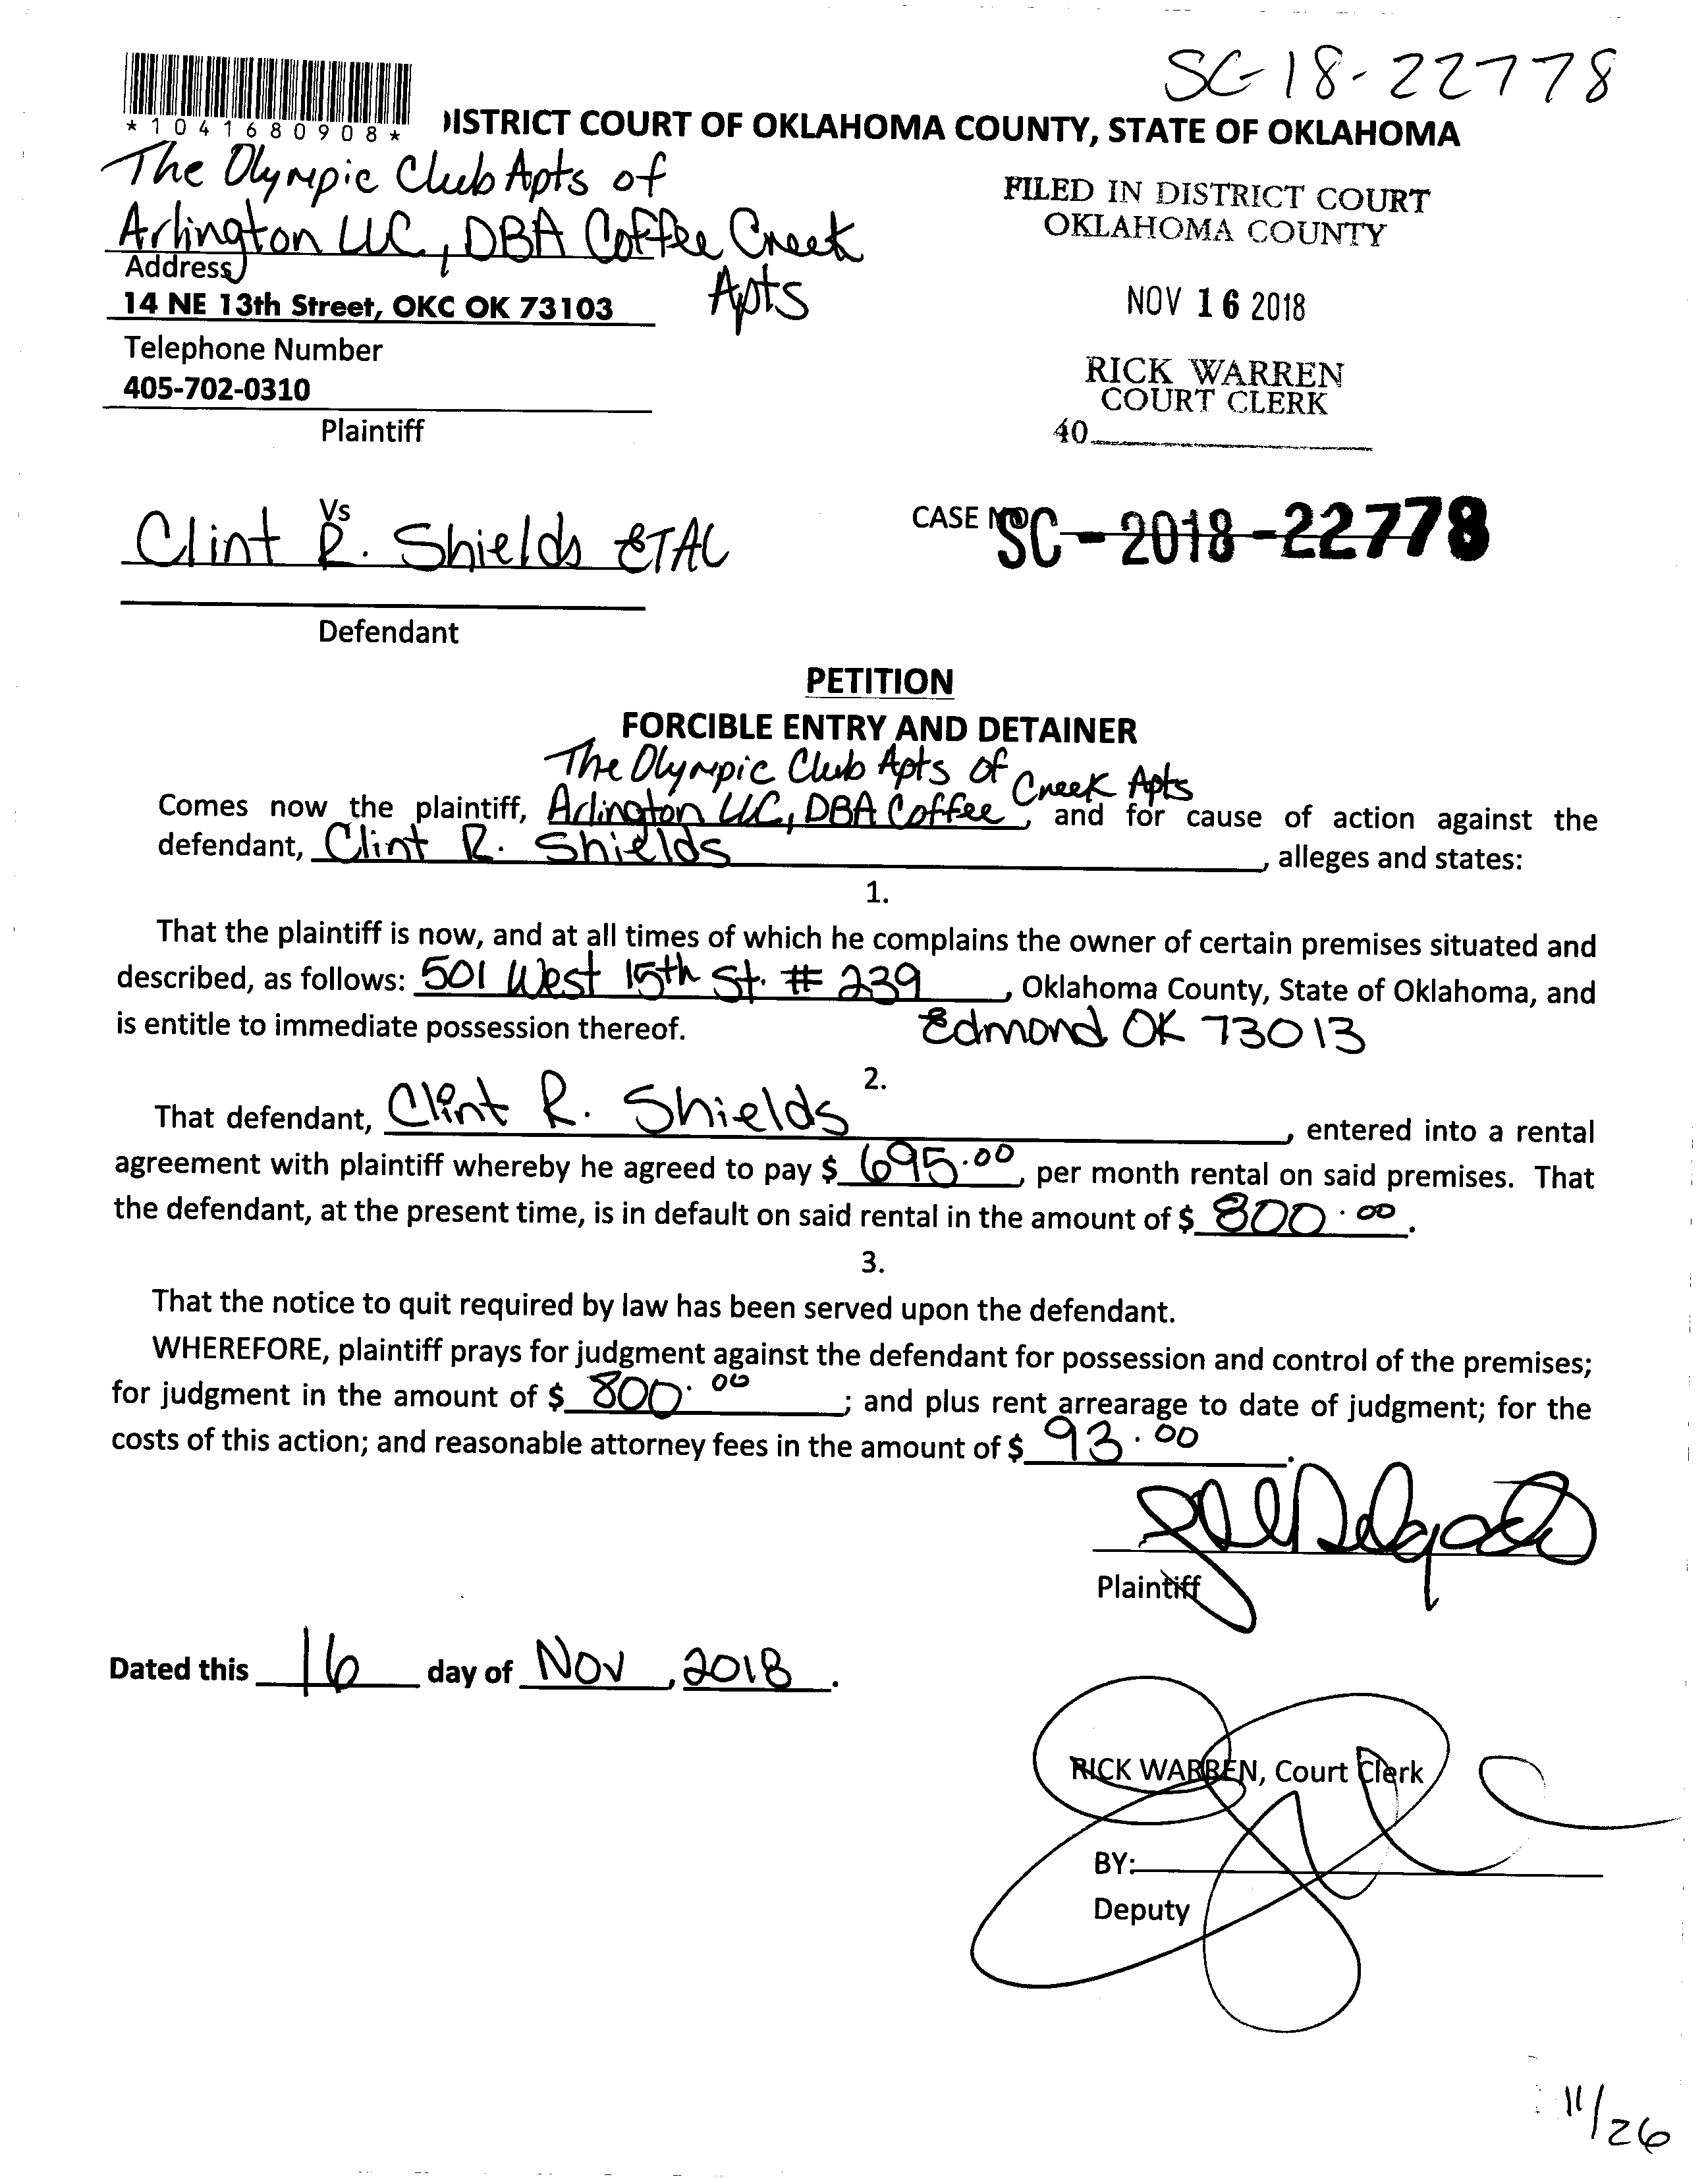 SC-18-22778
*1041680908*
DISTRICT COURT OF OKLAHOMA COUNTY, STATE OF OKLAHOMA
The Olympic Club Apts of
Arlington LLC, DBA Coffee Creek
Apts
Address
14 NE 13th Street, OKC OK 73103
Telephone Number
405-702-0310
Plaintiff
FILED IN DISTRICT COURT
OKLAHOMA COUNTY
NOV 16 2018
RICK WARREN
COURT CLERK
40
Vs
Clint R. Shields ETAL
Defendant
CASE NO SC-2018-22778
PETITION
FORCIBLE ENTRY AND DETAINER
The Olympic Club Apts of
Comes now the plaintiff, Arlington LLC, DBA Coffee Creek Apts, and for cause of action against the
defendant, Clint R. Shields, alleges and states:
1.
That the plaintiff is now, and at all times of which he complains the owner of certain premises situated and
described, as follows: 501 West 15th St. # 239, Oklahoma County, State of Oklahoma, and
is entitle to immediate possession thereof. Edmond OK 73013
2.
That defendant, Clint R. Shields, entered into a rental
agreement with plaintiff whereby he agreed to pay $ 695.00, per month rental on said premises. That
the defendant, at the present time, is in default on said rental in the amount of $ 800.00.
3.
That the notice to quit required by law has been served upon the defendant.
WHEREFORE, plaintiff prays for judgment against the defendant for possession and control of the premises;
for judgment in the amount of $ 800.00; and plus rent arrearage to date of judgment; for the
costs of this action; and reasonable attorney fees in the amount of $ 93.00.
Plaintiff
Dated this 16 day of Nov, 2018.
RICK WARREN, Court Clerk
BY:
Deputy
11/26